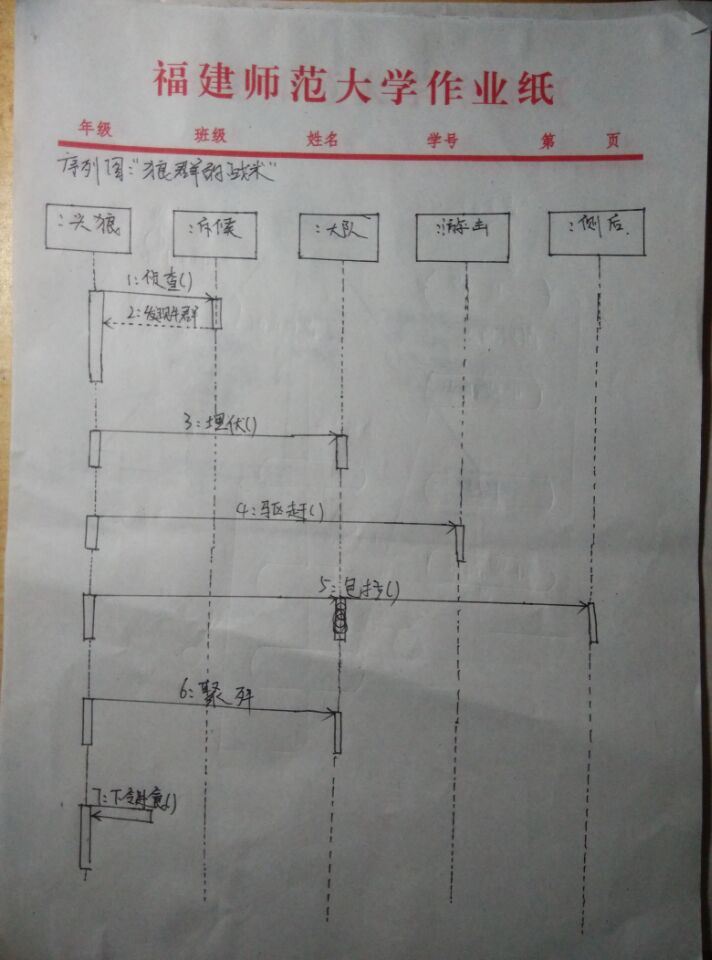 福建师范大学作业纸
年级 班级 姓名 学号 第 页
序列图:"狼群的战术"
:头狼 :斥候 :大队 :游击 :侧后
1:侦查()
2:发现牛群
3:埋伏()
4:驱赶()
5:包抄()
6:聚歼
7:下令()